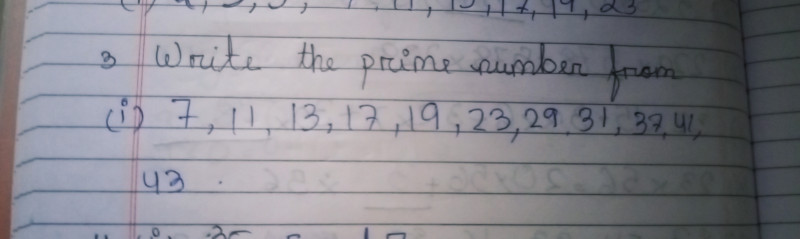 17, 19, 23
3 Write the prime number from
(i) 7, 11, 13, 17, 19, 23, 29, 31, 37, 41,
43.